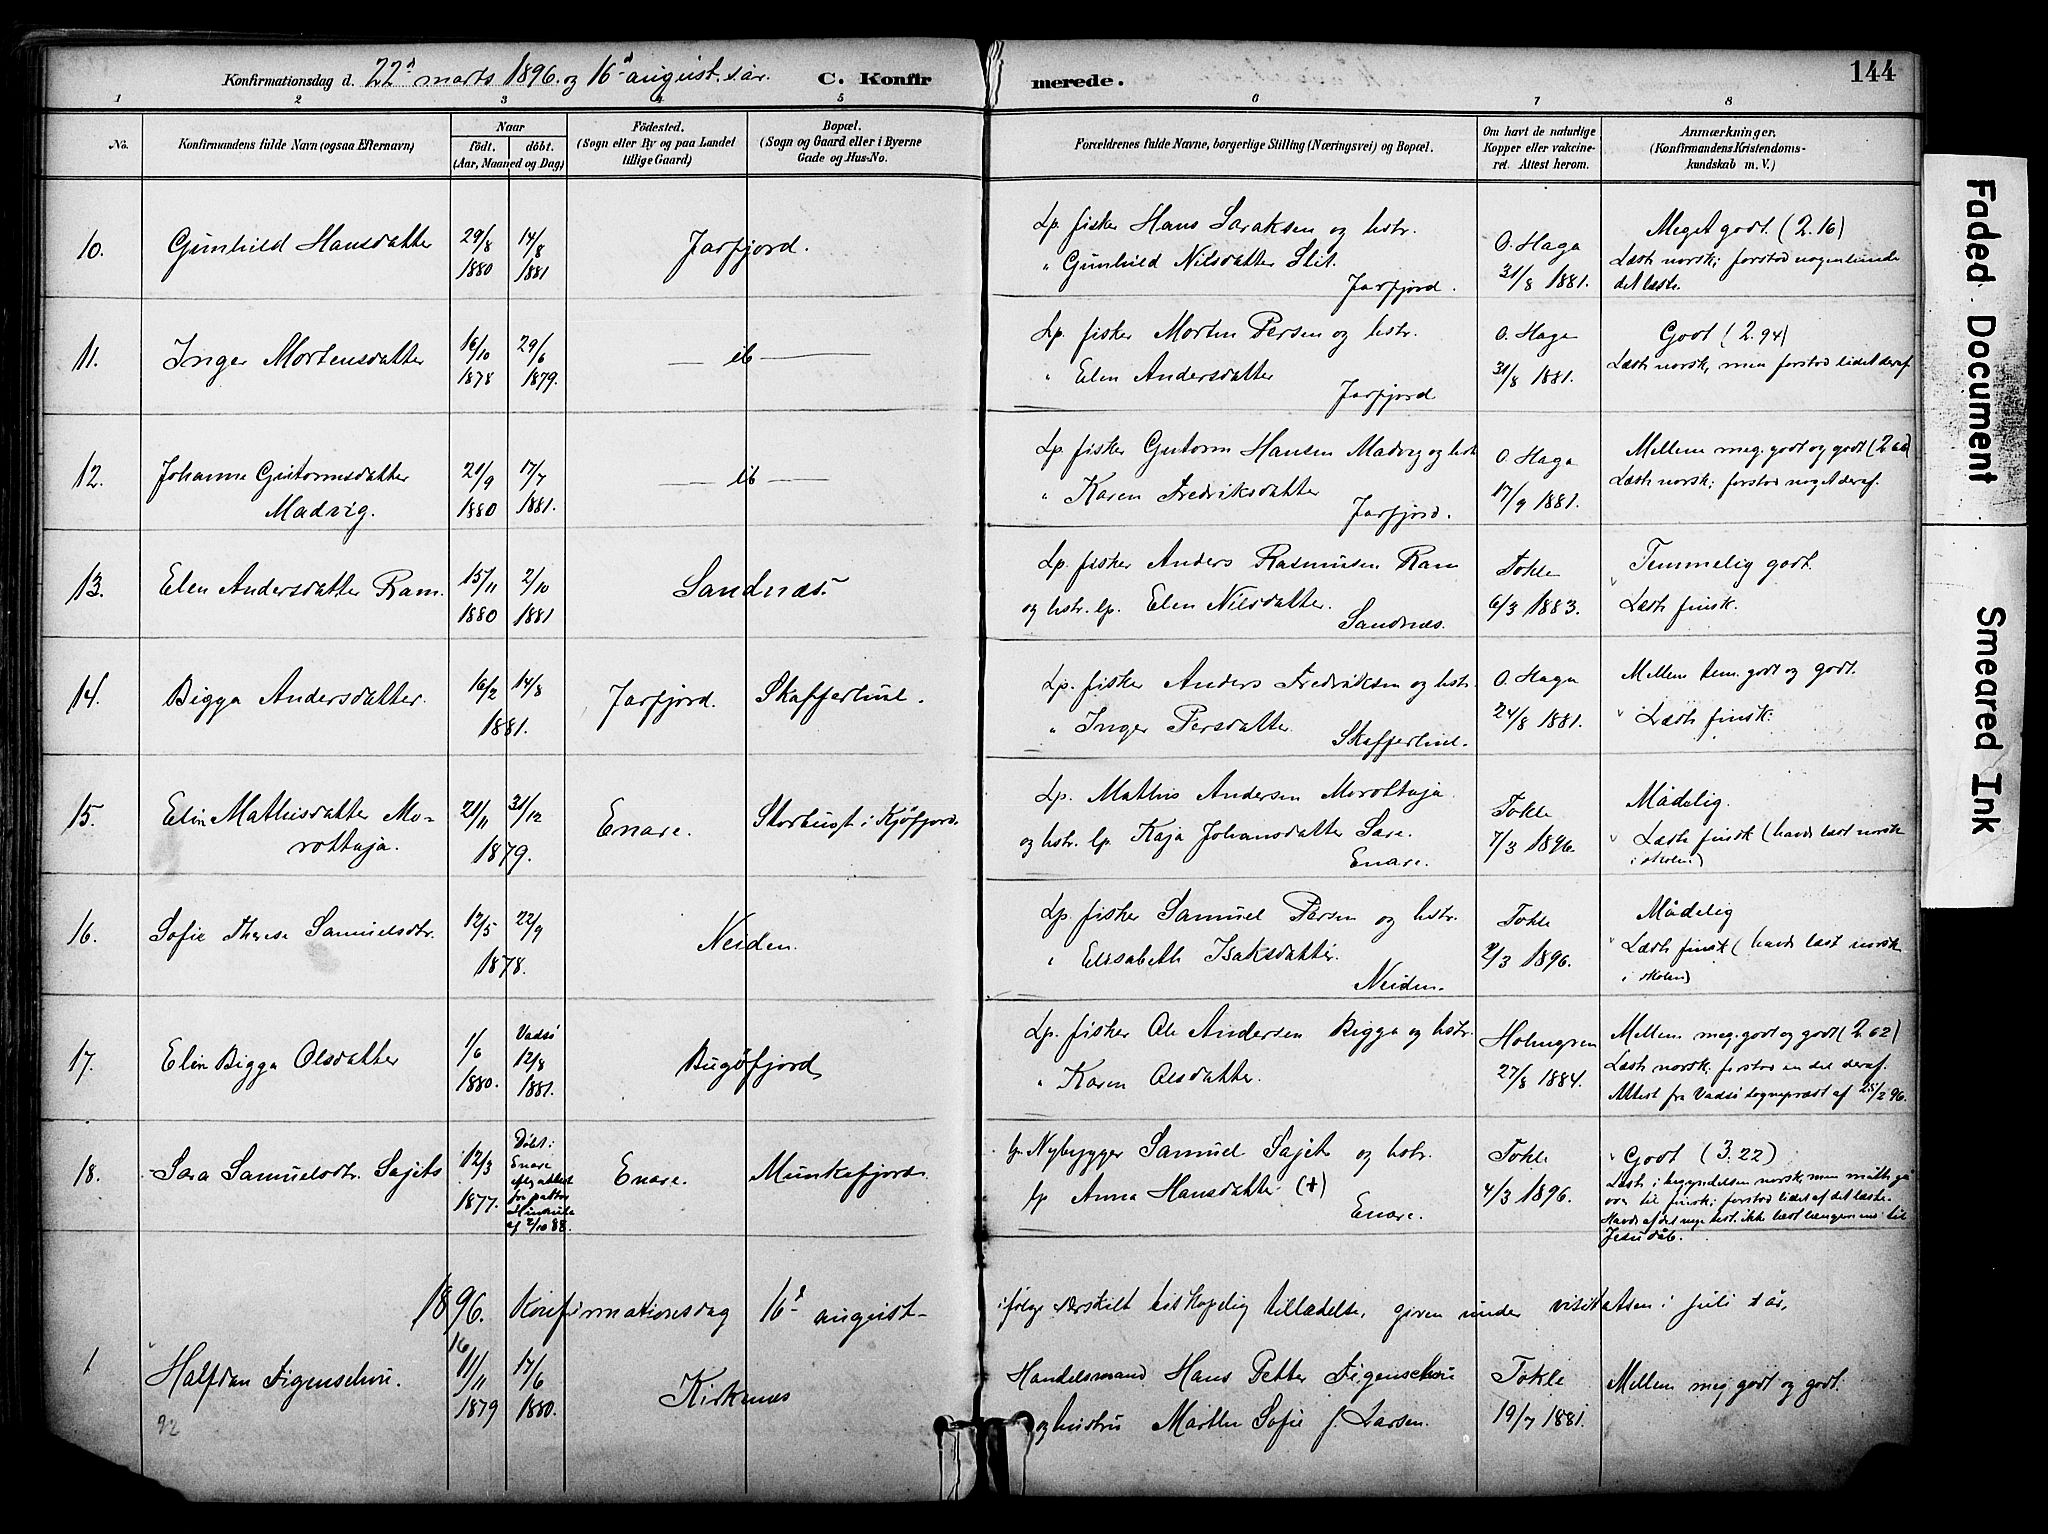 Konfirmationsdag d. 22d marts 1896. og 16d august s. år. C. Konfirmerede. 144
1 2 3 4 5 6 7 8
No. Konfirmandens fulde Navn (ogsaa Efternavn) Naar födt. döbt. (Aar, Maaned og Dag) Födested. (Sogn eller By og paa Landet tillige Gaard) Bopæl. (Sogn og Gaard eller i Byerne Gade og Hus-No. Forældrenes fulde Navne, borgerlige Stilling (Næringsvei) og Bopæl. Om havt de naturlige Kopper eller vakcineret. Attest herom. Anmærkninger. (Konfirmandens Kristendomskundskab m. V.)
10. Gunhild Hansdatter 29/8 1880 14/8 1881 Jarfjord.
Lp. fisker Hans Isaksen og hstr.
" Gunhild Nilsdatter Slit.
Jarfjord.
O. Haga 31/8 1881.
Meget godt. (2.16)
Læste norsk; forstod nogenlunde
det læste.
11. Inger Mortensdatter 16/10 1878 29/6 1879. — ib —
Lp. fisker Morten Persen og hstr.
" Elen Andersdatter
Jarfjord
O. Haga 31/8 1881.
Godt (2.94)
Læste norsk, men forstod lidet deraf
12. Johanne Guttormsdatter
Madvig.
21/9 1880 17/7 1881. — ib —
Lp. fisker Guttorm Hansen Madvig og hstr
" Karen Fredriksdatter
Jarfjord.
O. Haga 17/9 1881.
Mellem meg. godt og godt
Læste norsk; forstod noget deraf.
13. Elen Andersdatter Ram. 15/11 1880 2/10 1881 Sandnæs.
Lp. fisker Anders Rasmussen Ram
og hstr. lp. Elen Nilsdatter.
Sandnæs.
Tokle 6/3 1883.
Temmelig godt.
" Læste finsk.
14. Bigga Andersdatter. 16/2 14/8 1881. Jarfjord. Skafferhul.
Lp. fisker Anders Fredriksen og hstr.
" Inger Persdatter.
Skafferhul.
O. Haga 24/8 1881.
Mellem tem. godt og godt.
" Læste finsk.
15. Elin Mathisdatter Mo-
rottaja.
21/11 31/12 1879. Enare. Storbugt i Kjøfjord.
Lp. Mathis Andersen Morottaja
og hstr. lp. Kaja Johansdatter Sare.
Enare.
Tokle 7/3 1896.
Mådelig.
" Læste finsk (havde læst norsk
i skolen)
16. Sofie Therese Samuelsdtr. 12/5 22/9 1878. Neiden.
Lp. fisker Samuel Persen og hstr.
" Elisabeth Isaksdatter.
Neiden.
Tokle 1896.
Mådelig
" Læste finsk (havde læst norsk
i skolen)
17. Elen Bigga Olsdatter 1/6 1880. Vadsö 12/8 1881. Bugöfjord
Lp. fisker Ole Andersen Bigga og hstr.
" Karen Olsdatter.
Holmgren 27/8 1884.
Mellem meg. godt og godt (2.62)
Læste norsk; forstod en del deraf.
Attest fra Vadsö sognepræst af 25/2 96.
18. Sara Samuelsdtr. Sajets 12/3 1877. Döbt i Enare
af 2/10 88. Enare. Munkefjord.
lp. Nybygger Samuel Sajet og hstr.
lp Anna Hansdatter (+)
Enare.
Tokle 4/3 1896.
" Godt (3.22)
Læste i begyndelsen norsk, men måtte gå
over til finsk; forstod lidet af det læste.
Havde af det nye test. ikke læst længere end til
Jesu dåb.
1896. Konfirmationsdag 16d august ifølge særskilt biskopelig tilladelse, given under visitatsen i juli s. år,
1 Halfdan Figenschou. 16 11/11 1879 17/6 1880. Kirkenes
92
Handelsmand Hans Petter Figenschou
og hustru Marthe Sofie f. Larsen.
Tokle 19/7 1881.
Mellem meg. godt og godt.
Faded Document
Smeared Ink